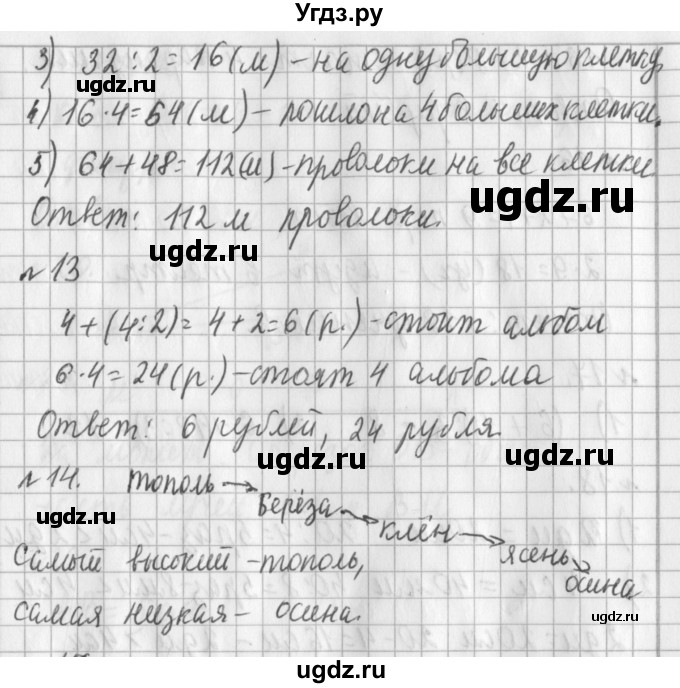 Угдз.ру
3) 32:2=16(м) - на одну большую клетку,
4) 16·4=64(м) - пошло на 4 больших клетки.
5) 64+48=112(м) - проволоки на все клетки
Ответ: 112 м проволоки.
№13
4+(4:2)= 4+2=6(р.) - стоит альбом
6·4=24(р.) - стоят 4 альбома
Ответ: 6 рублей, 24 рубля.
№14. тополь → берёза → клён → ясень → осина
Самый высокий - тополь,
самая низкая - осина.
ugdz.ru
ugdz.ru
ugdz.ru
ugdz.ru
ugdz.ru
ugdz.ru
ugdz.ru
ugdz.ru